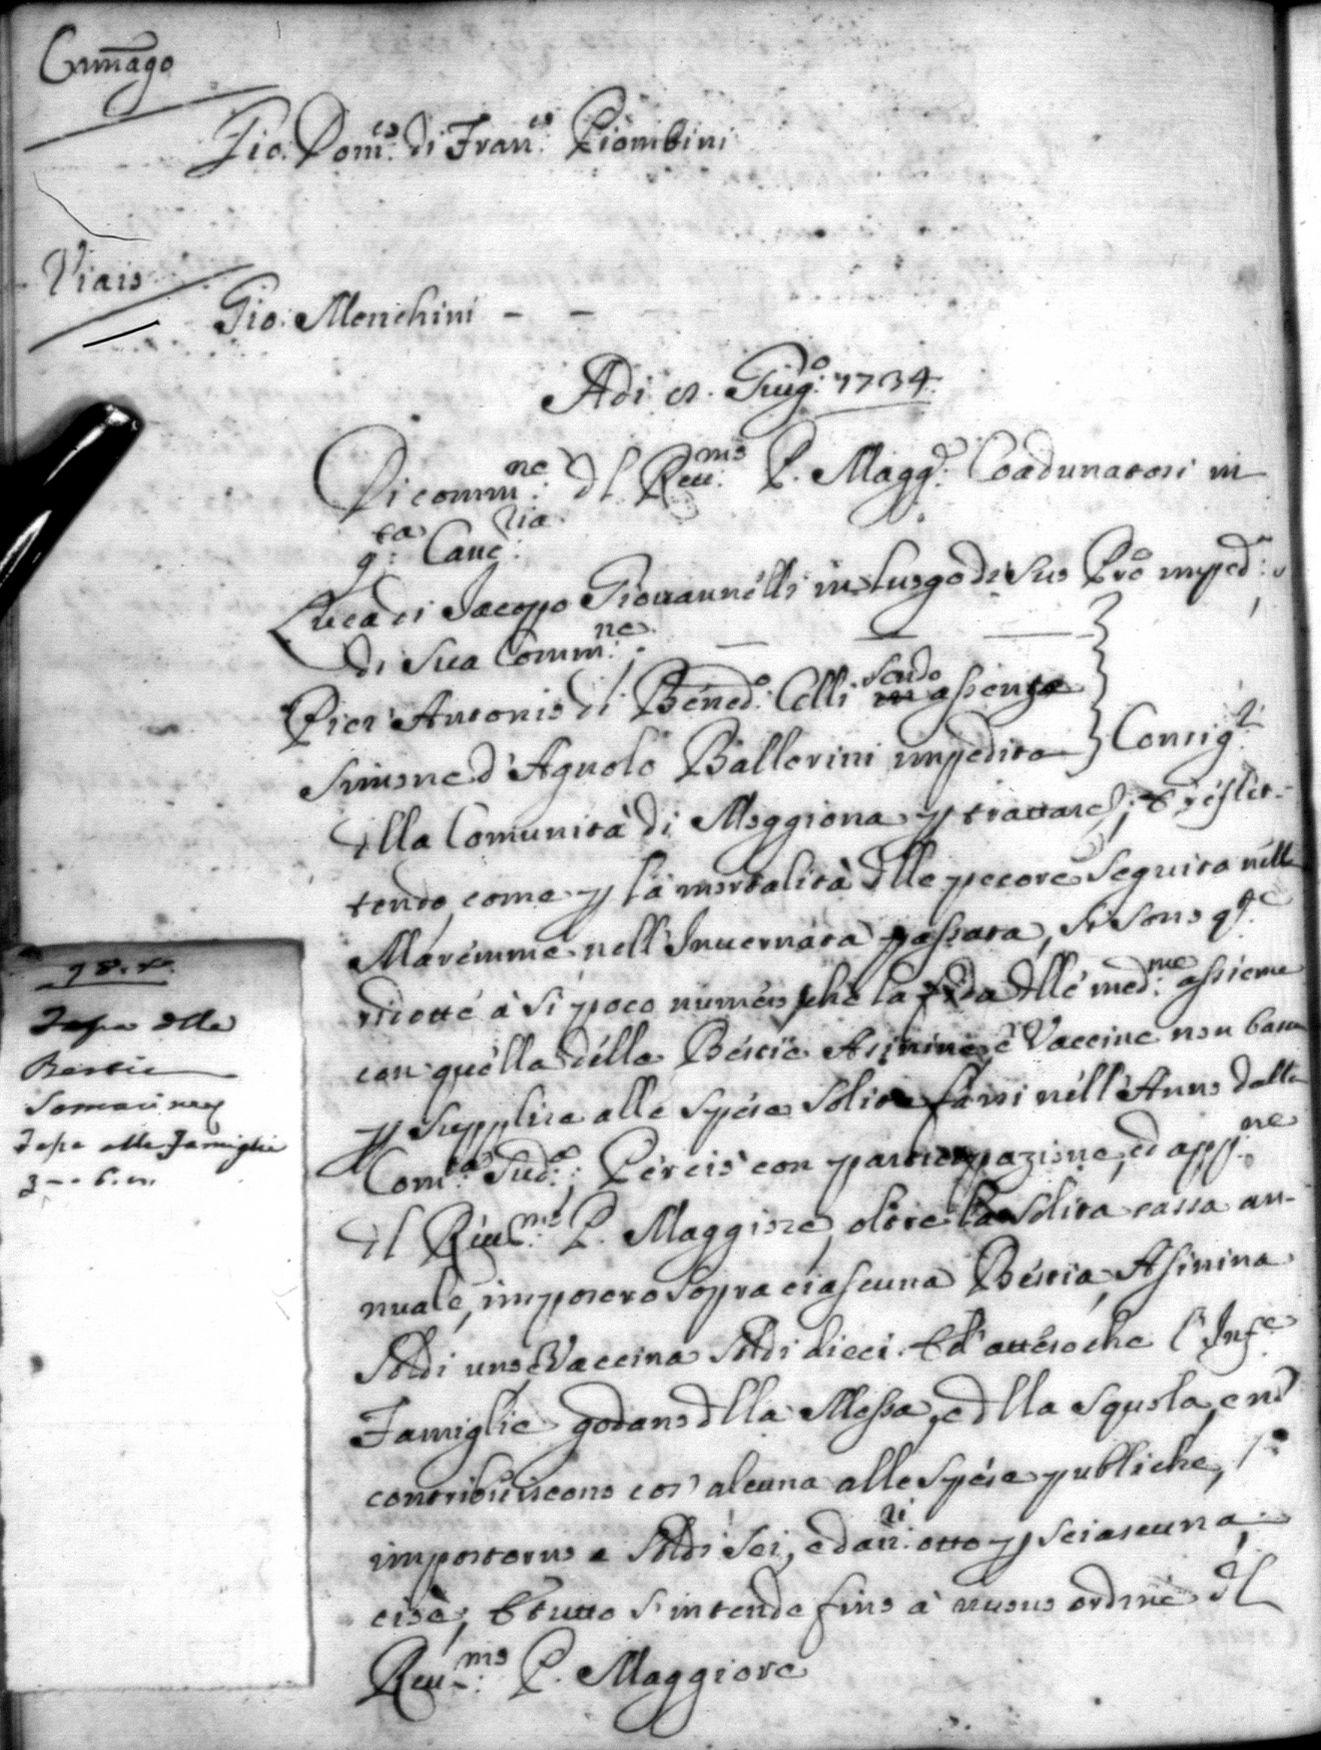 Gio. Dom.co di Fran.co Piombini
Viaio
Gio. Menchini - -
Adi Giug.o 1734
Di comm.ne dl Reu.mo P. Magg.e Coadunatosi in
q.ta Canc.ria
Luca di Jacopo Giouannelli in luogo di suo P.re imped.
di sua Comm.ne
Pier Antonio di Bened.o Celli sendo assente
Simone d'Agnolo Ballerini impedito Consig.ri
dlla Comunità di Moggiona p trattare; E reflet-
tendo, come p la mortalità dlle pecore seguita nelle
Maremme nell'Inuernata passata, si sono q.te
ridotte à si poco numero, che la fida dlle med.me assieme
con quella delle Bestie Asinine, e Vaccine non basta
p supplire alle spese solite farsi nell'Anno dalla
Com.tà Sud.a; Perciò con participazione, ed app.ne
dl Reu.mo P. Maggiore, oltre la solita tassa an-
nuale, imposero sopra ciascuna Bestia Asinina
soldi uno, e Vaccina soldi dieci. Ed atteso che l'Inf.e
Famiglie godano dlla Messa, e dlla squola, e no
contribuiscono cos' alcuna alle spese publiche,
impostorno a soldi sei, e da.ri otto p ciascuna,
cioè; E tutto s'intende fino à nuouo ordine dl
Reu.mo P. Maggiore
Tassa dlle
Bestie
Somarine
Tassa alle Famiglie